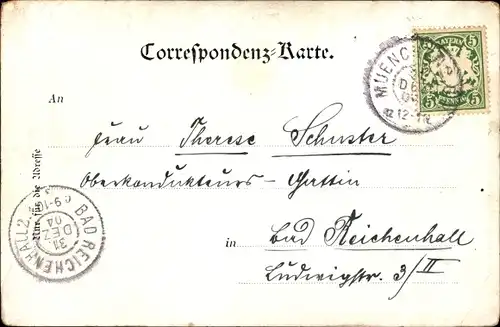 Correspondenz-Karte.
MUENCH
DEZ
12-1N
BAYERN
5 5
5 PFENNIG 5
An
Frau Therese Schuster
Oberkondukteurs-Gattin
in Bad Reichenhall
Ludwigstr. 3/II
Nur für die Adresse
BAD REICHENHALL 2.
31
DEZ
04
9-10